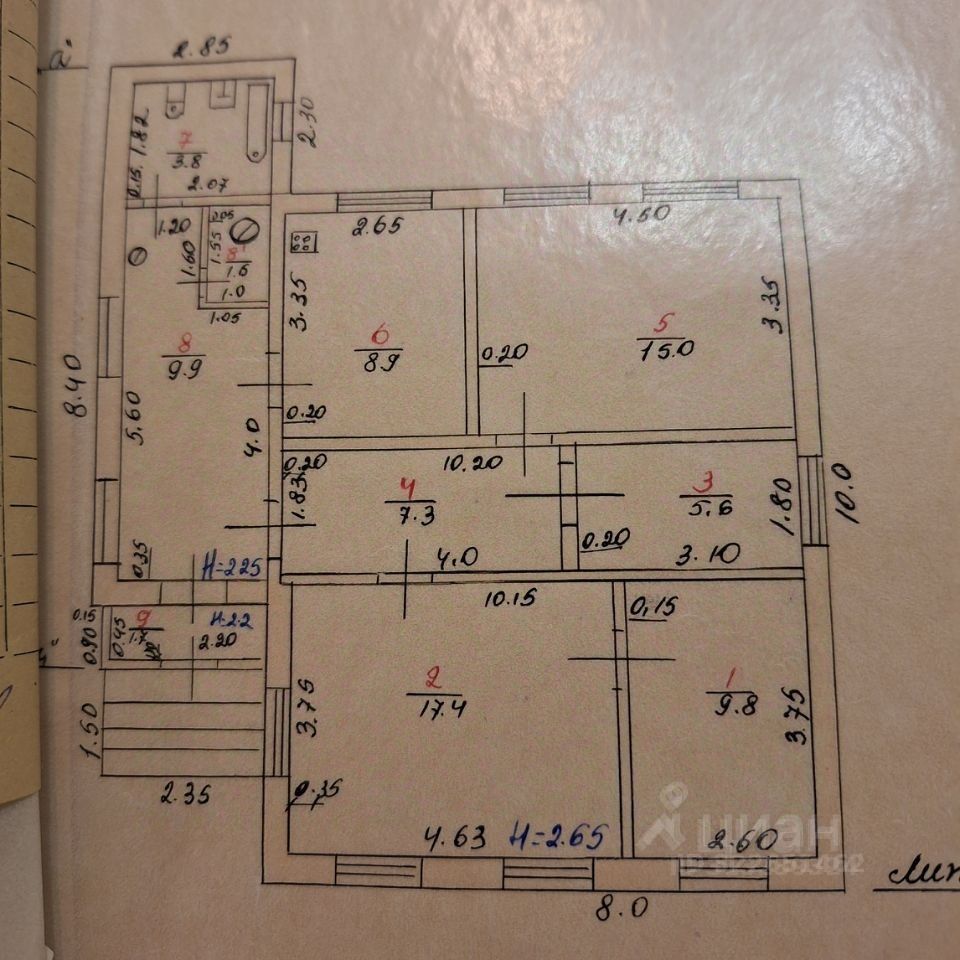 2.85
а'
2.30
0.15. 1.82
7
3.8
2.07
1.20
0.05
1.55
1.60
8'
1.6
1.0
1.05
2.65
4.50
3.35
3.35
6
8.9
5
15.0
0.20
8
9.9
8.40
5.60
4.0
0.20
0.20
10.20
1.83
4
7.3
3
5.6
1.80
10.0
0.20
4.0
3.10
0.35
H=225
10.15
0,15
9
1.7
H=2.2
0.15
0.90
0.45
2.20
2
17.4
1
9.8
3.75
3.75
1.50
2.35
0.35
4.63
H=2.65
2.60
циан
8.0